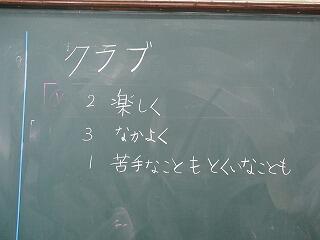 クラブ
2 楽しく
3 なかよく
1 苦手なこともとくいなことも